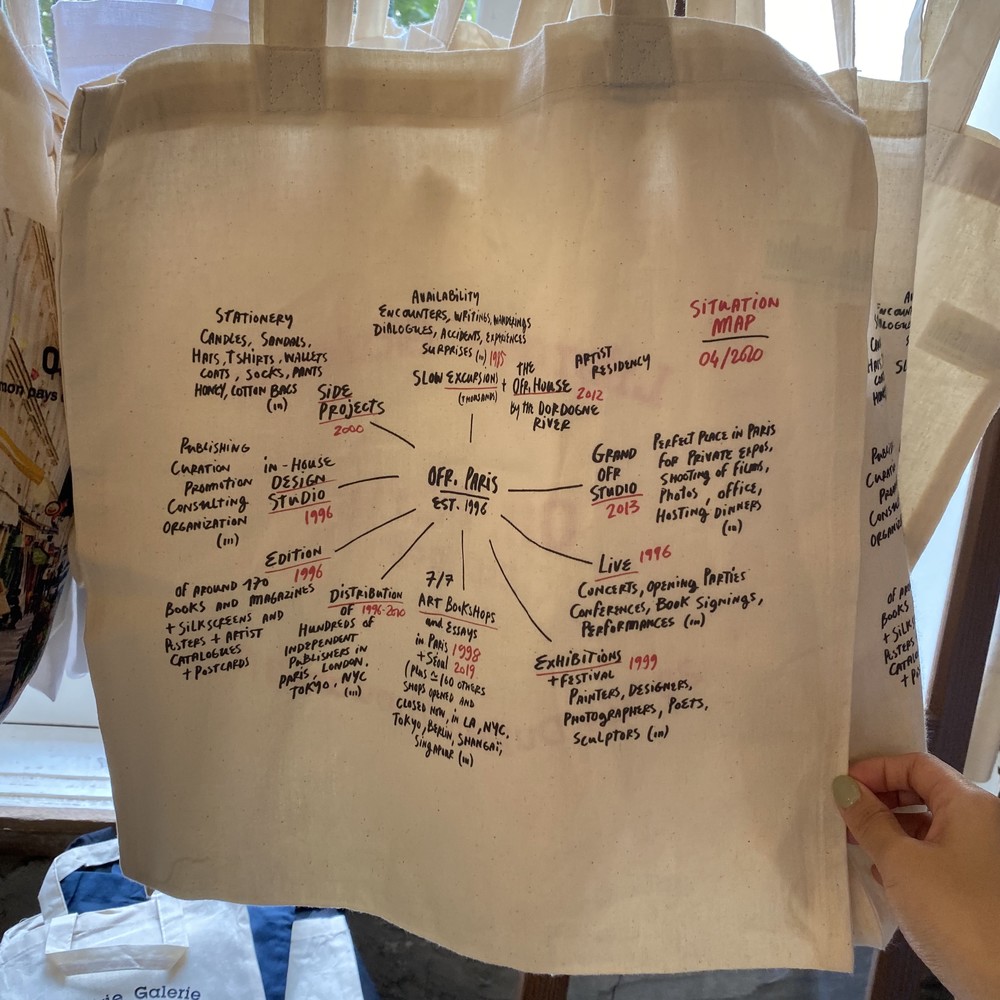 STATIONERY
CANDLES, SANDALS,
HATS, TSHIRTS, WALLETS
COATS, SOCKS, PANTS
HONEY, COTTON BAGS
(...)
SIDE
PROJECTS
2000
AVAILABILITY
ENCOUNTERS, WRITINGS, WANDERINGS
DIALOGUES, ACCIDENTS, EXPERIENCES
SURPRISES (...) 1985
SLOW EXCURSIONS +
(THOUSANDS)
THE
OFR. HOUSE
by the DORDOGNE
RIVER
ARTIST
RESIDENCY
2012
SITUATION
MAP
04/2020
PUBLISHING
CURATION
PROMOTION
CONSULTING
ORGANIZATION
(...)
IN-HOUSE
DESIGN
STUDIO
1996
OFR. PARIS
EST. 1996
GRAND
OFR
STUDIO
2013
PERFECT PLACE IN PARIS
FOR PRIVATE EXPOS,
SHOOTING OF FILMS,
PHOTOS, OFFICE,
HOSTING DINNERS
(...)
EDITION
1996
OF AROUND 170
BOOKS AND MAGAZINES
+ SILKSCREENS AND
POSTERS + ARTIST
CATALOGUES
+ POSTCARDS
DISTRIBUTION
OF 1996-2020
HUNDREDS OF
INDEPENDENT
PUBLISHERS IN
PARIS, LONDON.
TOKYO, NYC
(...)
7/7
ART BOOKSHOPS
and ESSAYS
in PARIS 1998
+ SEOUL 2019
(PLUS ≃ 160 OTHERS
SHOPS OPENED AND
CLOSED NOW, IN LA, NYC.
TOKYO, BERLIN, SHANGAÏ,
SINGAPUR (...)
LIVE 1996
CONCERTS, OPENING PARTIES
CONFERENCES, BOOK SIGNINGS,
PERFORMANCES (...)
EXHIBITIONS 1999
+ FESTIVAL
PAINTERS, DESIGNERS,
PHOTOGRAPHERS, POETS,
SCULPTORS (...)
mon pays
Galerie